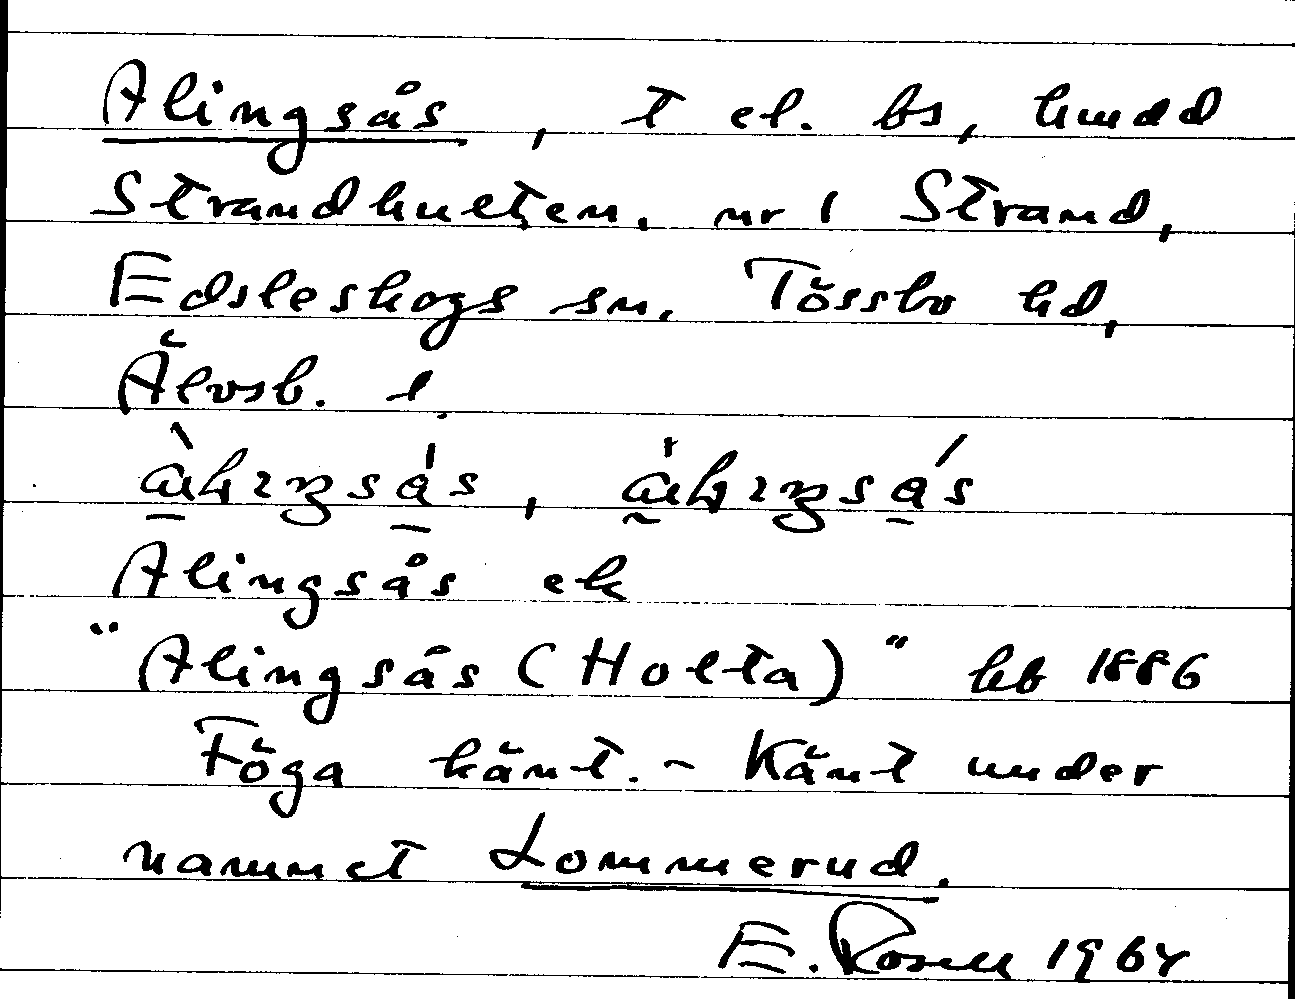 Alingsås, t el. bs, under
Strandhulten. nr 1 Strand,
Edsleskogs sn. Tössbo hd,
Älvsb. l.
Alingsås ek
"Alingsås (Holta)" hb 1886
Föga känt. - Känt under
namnet Lommerud.
E. Rosell 1964